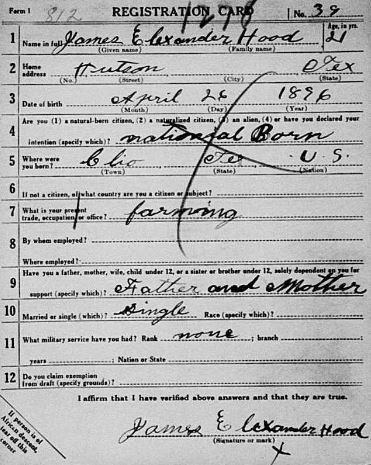 Form 1 812 REGISTRATION CARD No. 39
1 Name in full James Elexander Hood Age, in yrs. 21
(Given name) (Family name)
2 Home address Hutson Tex
(No.) (Street) (City) (State)
3 Date of birth April 26 1896
(Month) (Day) (Year)
4 Are you (1) a natural-born citizen, (2) a naturalized citizen, (3) an alien, (4) or have you declared your
intention (specify which)? national Born
5 Where were you born? Clio Tex U. S.
(Town) (State) (Nation)
6 If not a citizen, of what country are you a citizen or subject?
7 What is your present trade, occupation, or office? farming
8 By whom employed?
Where employed?
9 Have you a father, mother, wife, child under 12, or a sister or brother under 12, solely dependent on you for
support (specify which)? Father and Mother
10 Married or single (which)? Single Race (specify which)?
11 What military service have you had? Rank none ; branch
years ; Nation or State
12 Do you claim exemption
from draft (specify grounds)?
I affirm that I have verified above answers and that they are true.
James Elexander Hood
(Signature or mark)
x
If person is of
African descent,
tear off this
corner